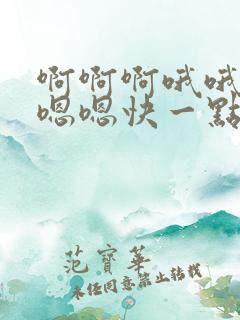 啊啊啊哦哦
嗯嗯快一點
范寶華
未经同意禁止转载